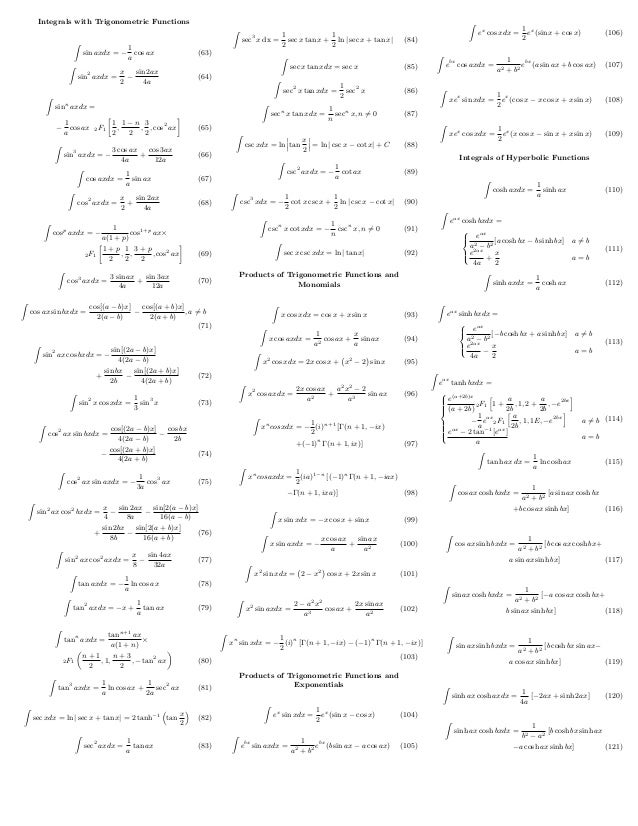 Integrals with Trigonometric Functions
∫ sin axdx = −1/a cos ax (63)
∫ sin² axdx = x/2 − sin 2ax/4a (64)
∫ sinⁿ axdx =
−1/a cos ax ₂F₁ [1/2, (1−n)/2, 3/2, cos² ax] (65)
∫ sin³ axdx = −3 cos ax/4a + cos 3ax/12a (66)
∫ cos axdx = 1/a sin ax (67)
∫ cos² axdx = x/2 + sin 2ax/4a (68)
∫ cosᵖ axdx = −1/(a(1+p)) cos¹⁺ᵖ ax×
₂F₁ [(1+p)/2, 1/2, (3+p)/2, cos² ax] (69)
∫ cos³ axdx = 3 sin ax/4a + sin 3ax/12a (70)
∫ cos ax sin bxdx = cos[(a−b)x]/2(a−b) − cos[(a+b)x]/2(a+b), a ≠ b
(71)
∫ sin² ax cos bxdx = −sin[(2a−b)x]/4(2a−b)
+ sin bx/2b − sin[(2a+b)x]/4(2a+b) (72)
∫ sin² x cos xdx = 1/3 sin³ x (73)
∫ cos² ax sin bxdx = cos[(2a−b)x]/4(2a−b) − cos bx/2b
− cos[(2a+b)x]/4(2a+b) (74)
∫ cos² ax sin axdx = −1/3a cos³ ax (75)
∫ sin² ax cos² bxdx = x/4 − sin 2ax/8a − sin[2(a−b)x]/16(a−b)
+ sin 2bx/8b − sin[2(a+b)x]/16(a+b) (76)
∫ sin² ax cos² axdx = x/8 − sin 4ax/32a (77)
∫ tan axdx = −1/a ln cos ax (78)
∫ tan² axdx = −x + 1/a tan ax (79)
∫ tanⁿ axdx = tanⁿ⁺¹ ax/a(1+n) ×
₂F₁ ((n+1)/2, 1, (n+3)/2, −tan² ax) (80)
∫ tan³ axdx = 1/a ln cos ax + 1/2a sec² ax (81)
∫ sec xdx = ln | sec x + tan x| = 2 tanh⁻¹ (tan x/2) (82)
∫ sec² axdx = 1/a tan ax (83)
∫ sec³ x dx = 1/2 sec x tan x + 1/2 ln | sec x + tan x| (84)
∫ sec x tan xdx = sec x (85)
∫ sec² x tan xdx = 1/2 sec² x (86)
∫ secⁿ x tan xdx = 1/n secⁿ x, n ≠ 0 (87)
∫ csc xdx = ln |tan x/2| = ln | csc x − cot x| + C (88)
∫ csc² axdx = −1/a cot ax (89)
∫ csc³ xdx = −1/2 cot x csc x + 1/2 ln | csc x − cot x| (90)
∫ cscⁿ x cot xdx = −1/n cscⁿ x, n ≠ 0 (91)
∫ sec x csc xdx = ln | tan x| (92)
Products of Trigonometric Functions and
Monomials
∫ x cos xdx = cos x + x sin x (93)
∫ x cos axdx = 1/a² cos ax + x/a sin ax (94)
∫ x² cos xdx = 2x cos x + (x² − 2) sin x (95)
∫ x² cos axdx = 2x cos ax/a² + (a²x² − 2)/a³ sin ax (96)
∫ xⁿ cos xdx = −1/2 (i)ⁿ⁺¹ [Γ(n + 1, −ix)
+ (−1)ⁿ Γ(n + 1, ix)] (97)
∫ xⁿ cos axdx = 1/2 (ia)¹⁻ⁿ [(−1)ⁿ Γ(n + 1, −iax)
−Γ(n + 1, ixa)] (98)
∫ x sin xdx = −x cos x + sin x (99)
∫ x sin axdx = −x cos ax/a + sin ax/a² (100)
∫ x² sin xdx = (2 − x²) cos x + 2x sin x (101)
∫ x² sin axdx = (2 − a²x²)/a³ cos ax + 2x sin ax/a² (102)
∫ xⁿ sin xdx = −1/2 (i)ⁿ [Γ(n + 1, −ix) − (−1)ⁿ Γ(n + 1, −ix)]
(103)
Products of Trigonometric Functions and
Exponentials
∫ eˣ sin xdx = 1/2 eˣ(sin x − cos x) (104)
∫ eᵇˣ sin axdx = 1/(a² + b²) eᵇˣ(b sin ax − a cos ax) (105)
∫ eˣ cos xdx = 1/2 eˣ(sin x + cos x) (106)
∫ eᵇˣ cos axdx = 1/(a² + b²) eᵇˣ(a sin ax + b cos ax) (107)
∫ xeˣ sin xdx = 1/2 eˣ(cos x − x cos x + x sin x) (108)
∫ xeˣ cos xdx = 1/2 eˣ(x cos x − sin x + x sin x) (109)
Integrals of Hyperbolic Functions
∫ cosh axdx = 1/a sinh ax (110)
∫ eᵃˣ cosh bxdx =
{ eᵃˣ/(a² − b²) [a cosh bx − b sinh bx] a ≠ b
e²ᵃˣ/4a + x/2 a = b (111)
∫ sinh axdx = 1/a cosh ax (112)
∫ eᵃˣ sinh bxdx =
{ eᵃˣ/(a² − b²) [−b cosh bx + a sinh bx] a ≠ b
e²ᵃˣ/4a − x/2 a = b (113)
∫ eᵃˣ tanh bxdx =
{ e⁽ᵃ⁺²ᵇ⁾ˣ/(a + 2b) ₂F₁ [1 + a/2b, 1, 2 + a/2b, −e²ᵇˣ]
−1/a eᵃˣ ₂F₁ [a/2b, 1, 1E, −e²ᵇˣ] a ≠ b (114)
(eᵃˣ − 2 tan⁻¹[eᵃˣ])/a a = b
∫ tanh ax dx = 1/a ln cosh ax (115)
∫ cos ax cosh bxdx = 1/(a² + b²) [a sin ax cosh bx
+b cos ax sinh bx] (116)
∫ cos ax sinh bxdx = 1/(a² + b²) [b cos ax cosh bx+
a sin ax sinh bx] (117)
∫ sin ax cosh bxdx = 1/(a² + b²) [−a cos ax cosh bx+
b sin ax sinh bx] (118)
∫ sin ax sinh bxdx = 1/(a² + b²) [b cosh bx sin ax−
a cos ax sinh bx] (119)
∫ sinh ax cosh axdx = 1/4a [−2ax + sinh 2ax] (120)
∫ sinh ax cosh bxdx = 1/(b² − a²) [b cosh bx sinh ax
−a cosh ax sinh bx] (121)